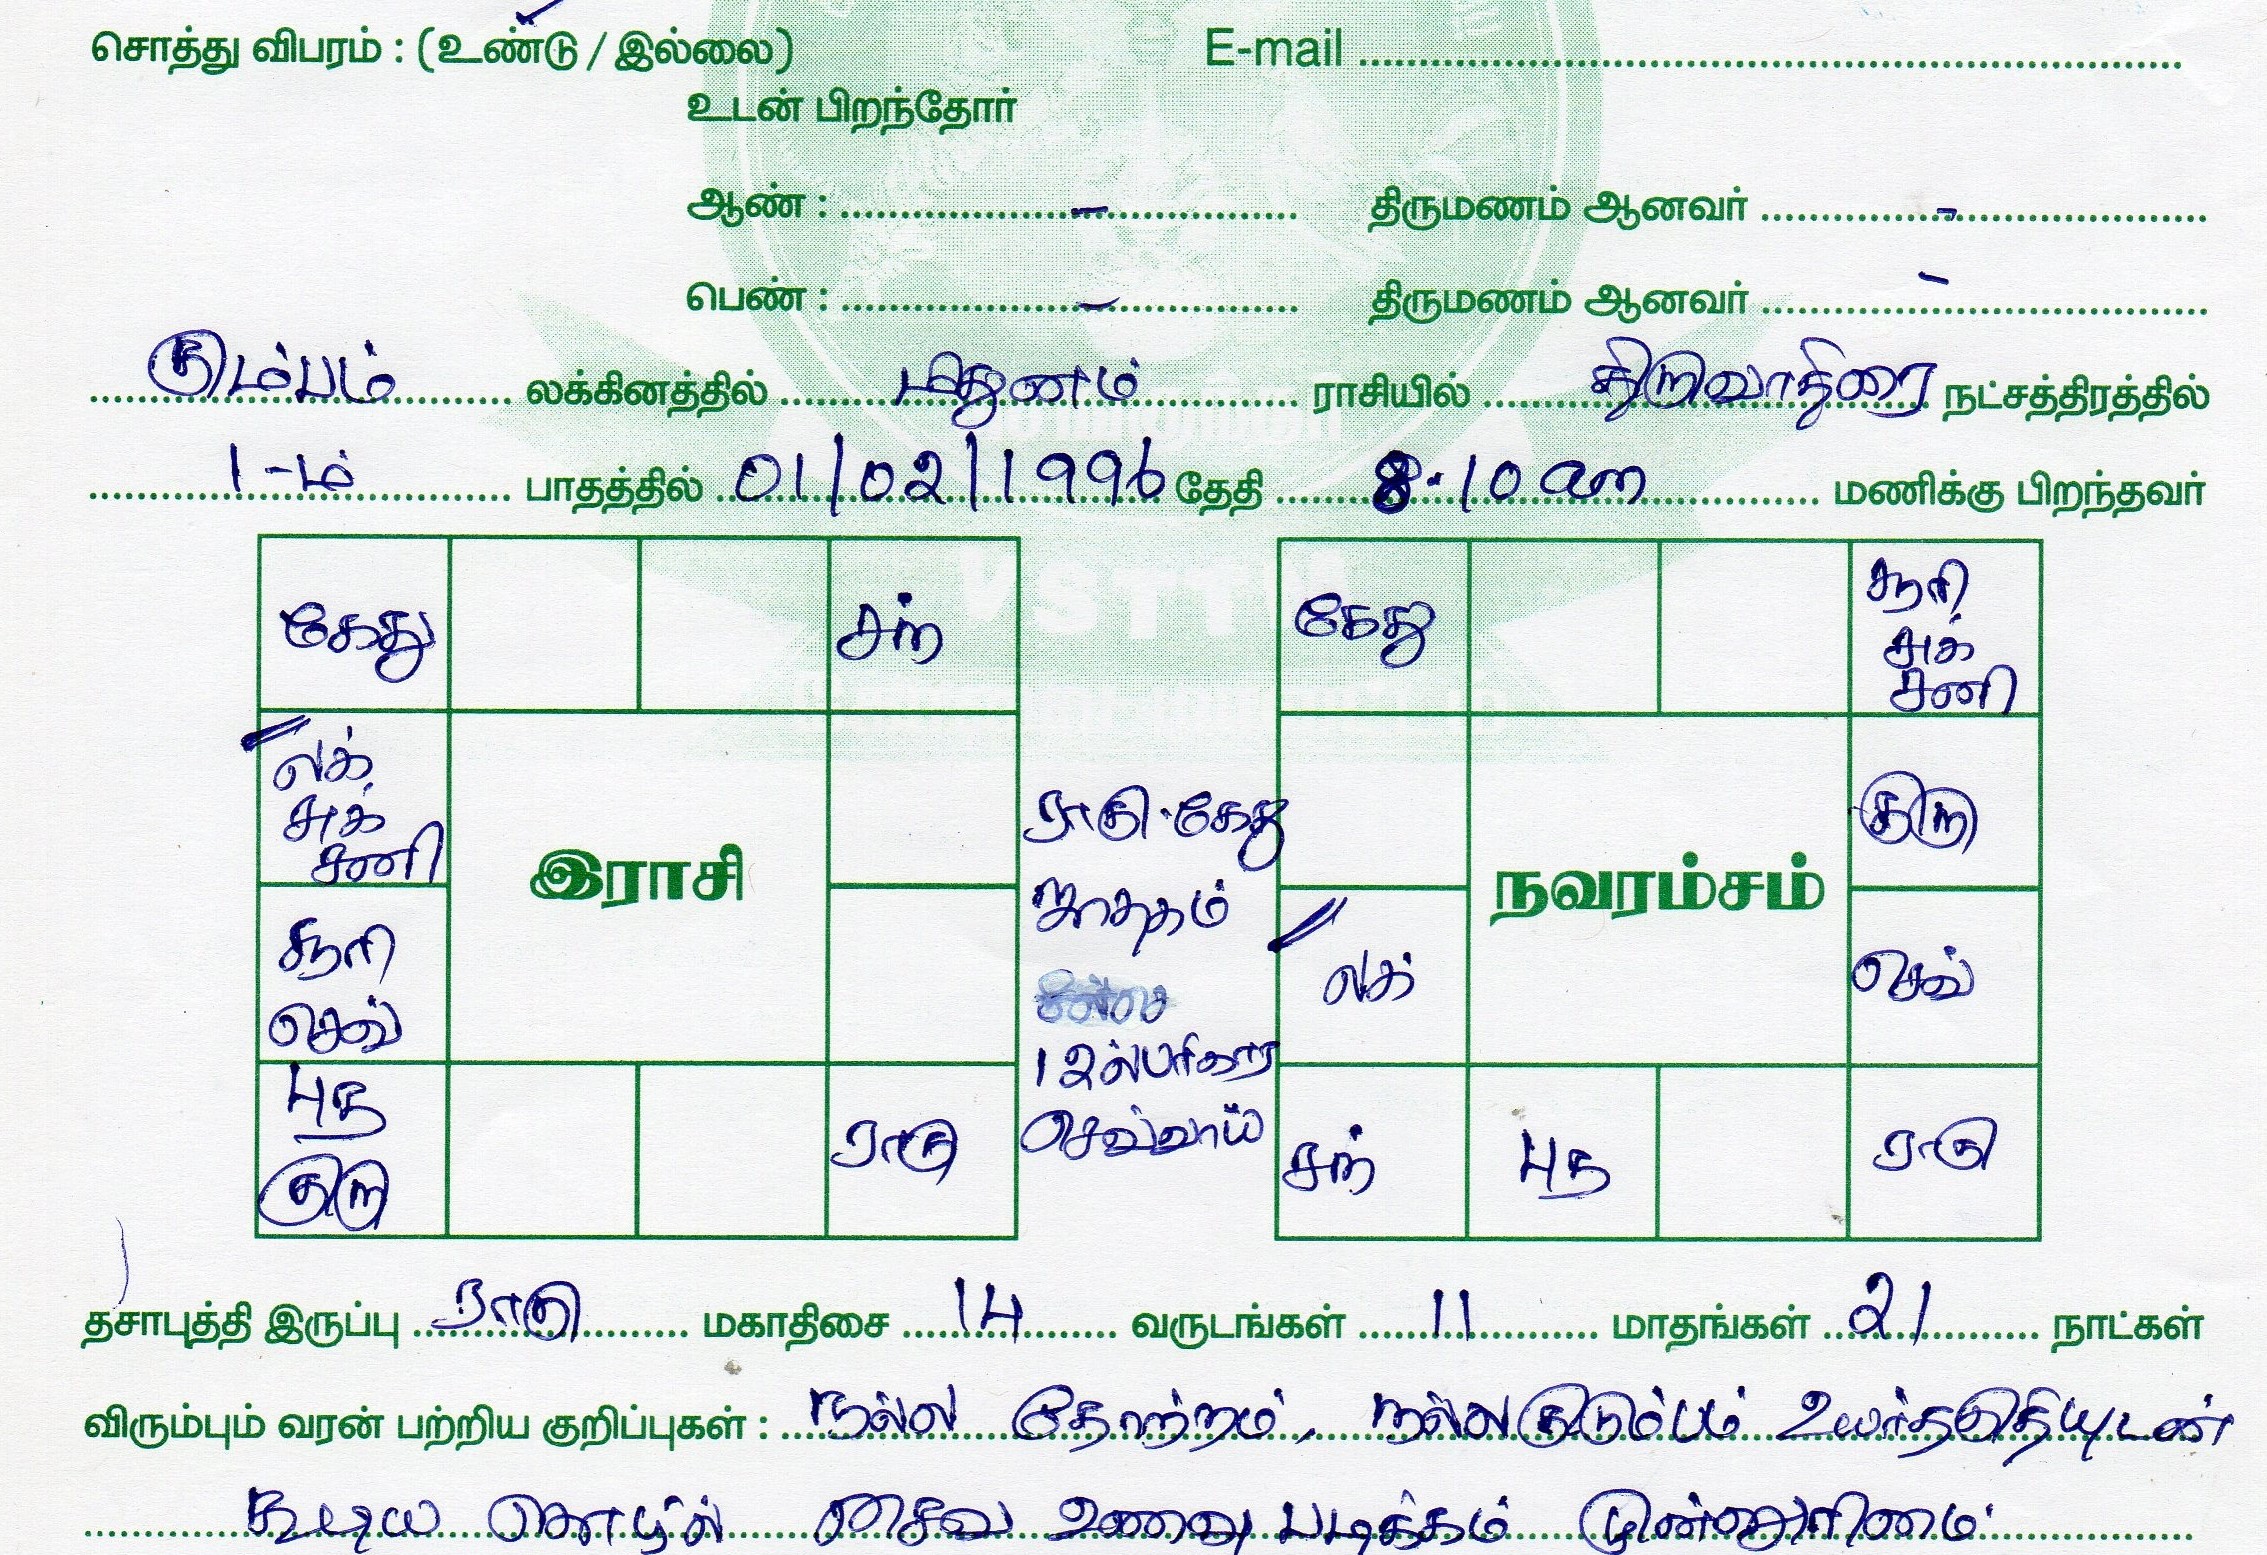 சொத்து விபரம் : (உண்டு / இல்லை) E-mail
உடன் பிறந்தோர்
ஆண் : - திருமணம் ஆனவர் -
பெண் : - திருமணம் ஆனவர் -
கும்பம் லக்கினத்தில் மிதுனம் ராசியில் திருவாதிரை நட்சத்திரத்தில்
1-ம் பாதத்தில் 01/02/1996 தேதி 8.10 am மணிக்கு பிறந்தவர்
கேது சந்
லக்
சுக்
சனி
இராசி
சூரி
செவ்
புத
குரு
ராகு
ராகு.கேது
ஜாதகம்
12ல் பரிகார
செவ்வாய்
கேது சூரி
சுக்
சனி
குரு
நவரம்சம்
லக் செவ்
சந் புத ராகு
தசாபுத்தி இருப்பு ராகு மகாதிசை 14 வருடங்கள் 11 மாதங்கள் 21 நாட்கள்
விரும்பும் வரன் பற்றிய குறிப்புகள் : நல்ல தோற்றம், நல்ல குடும்பம் உயர்தகுதியுடன்
கூடிய தொழில் சைவ உணவு படிக்கம் முன்னுரிமை
VSTTM